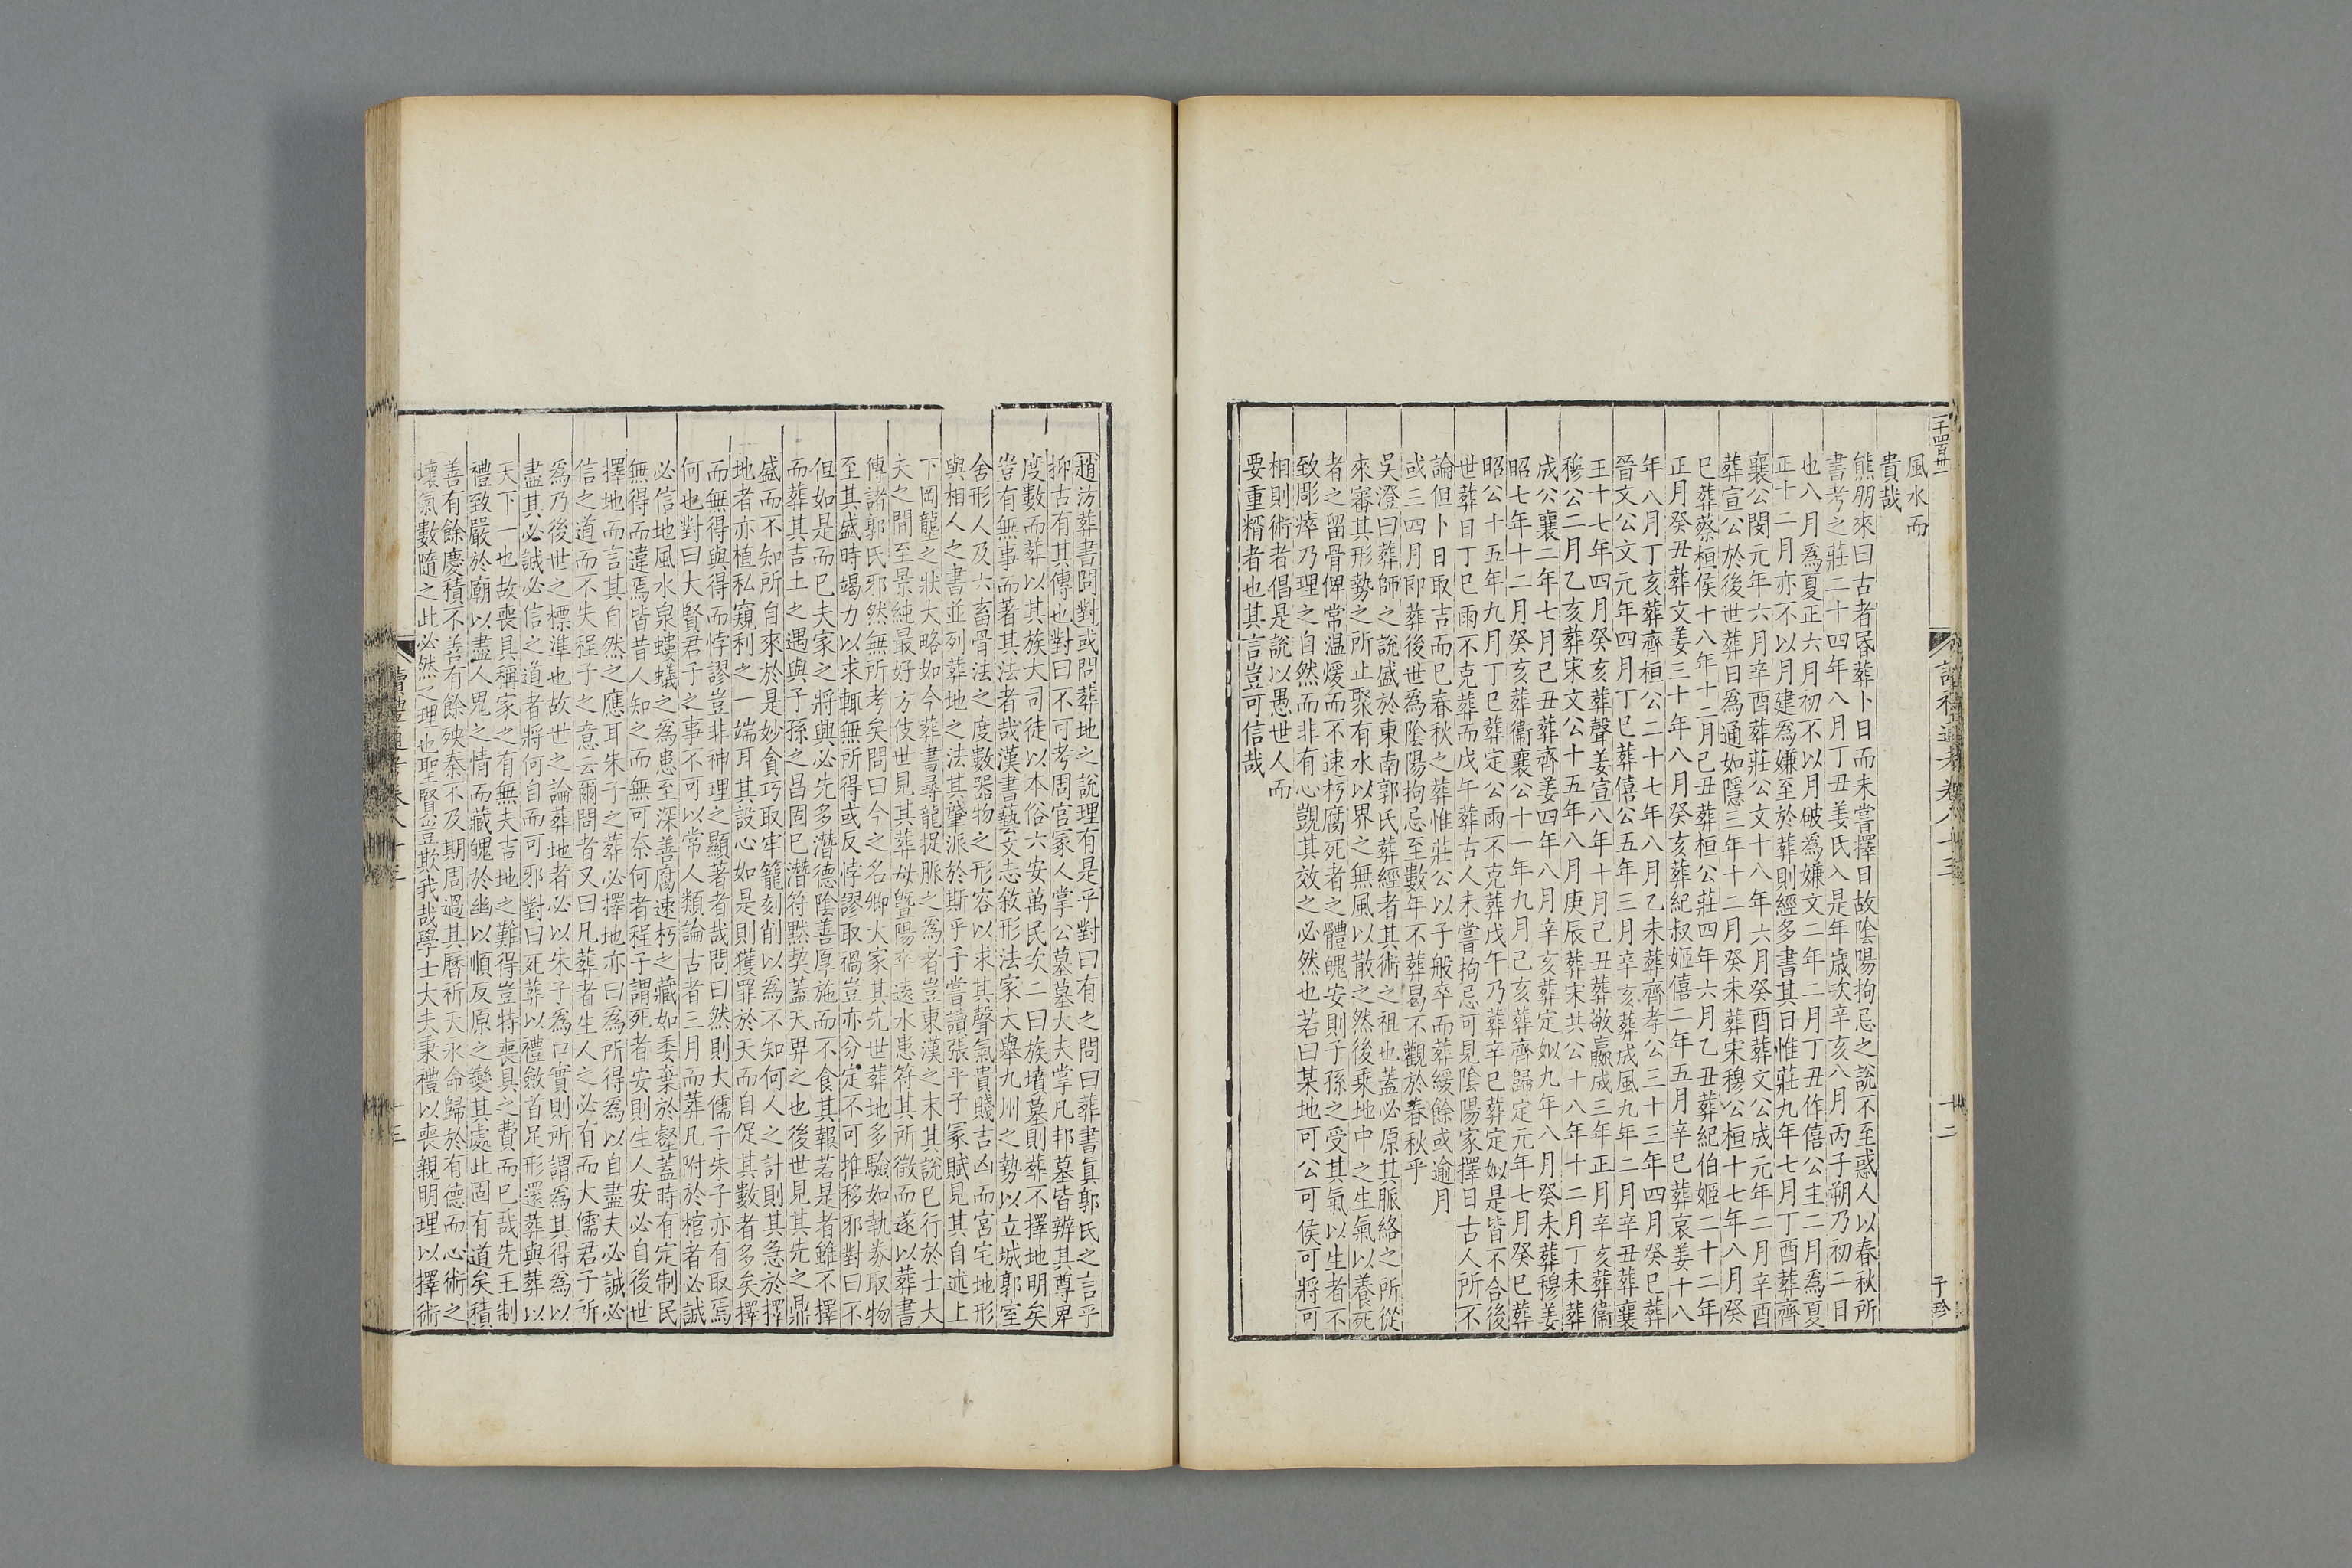 二千四百卅一
讀禮通考卷八十三
十二
子珍
風水而
貴哉
熊朋來曰古者昏葬卜日而未嘗擇日故陰陽拘忌之說不至惑人以春秋所
書考之莊二十四年八月丁丑姜氏入是年歲次辛亥八月丙子朔乃初二日
也八月爲夏正六月初不以月破爲嫌文二年二月丁丑作僖公主二月爲夏
正十二月亦不以月建爲嫌至於葬則經多書其日惟莊九年七月丁酉葬齊
襄公閔元年六月辛酉葬莊公文十八年六月癸酉葬文公成元年二月辛酉
葬宣公於後世葬日爲通如隱三年十二月癸未葬宋穆公桓十七年八月癸
巳葬蔡桓侯十八年十二月己丑葬桓公莊四年六月乙丑葬紀伯姬二十二年
正月癸丑葬文姜三十年八月癸亥葬紀叔姬僖二年五月辛巳葬哀姜十八
年八月丁亥葬齊桓公二十七年八月乙未葬齊孝公三十三年四月癸巳葬
晉文公文元年四月丁巳葬僖公五年三月辛亥葬成風九年二月辛丑葬襄
王十七年四月癸亥葬聲姜宣八年十月己丑葬敬嬴成三年正月辛亥葬衞
穆公二月乙亥葬宋文公十五年八月庚辰葬宋共公十八年十二月丁未葬
成公襄二年七月己丑葬齊姜四年八月辛亥葬定姒九年八月癸未葬穆姜
昭七年十二月癸亥葬衞襄公十一年九月己亥葬齊歸定元年七月癸巳葬
昭公十五年九月丁巳葬定公雨不克葬戊午乃葬辛巳葬定姒是皆不合後
世葬日丁巳雨不克葬而戊午葬古人未嘗拘忌可見陰陽家擇日古人所不
論但卜日取吉而已春秋之葬惟莊公以子般卒而葬緩餘或逾月
或三四月卽葬後世爲陰陽拘忌至數年不葬曷不觀於春秋乎
吳澄曰葬師之說盛於東南郭氏葬經者其術之祖也蓋必原其脈絡之所從
來審其形勢之所止聚有水以界之無風以散之然後乗地中之生氣以養死
者之留骨俾常温煖而不速朽腐死者之體魄安則子孫之受其氣以生者不
致彫瘁乃理之自然而非有心覬其效之必然也若曰某地可公可侯可將可
相則術者倡是說以愚世人而
要重糈者也其言豈可信哉
趙汸葬書問對或問葬地之說理有是乎對曰有之問曰葬書眞郭氏之言乎
抑古有其傳也對曰不可考周官冢人掌公墓墓大夫掌凡邦墓皆辨其尊卑
度數而葬以其族大司徒以本俗六安萬民次二曰族墳墓則葬不擇地明矣
豈有無事而著其法者哉漢書藝文志敘形法家大舉九州之勢以立城郭室
舍形人及六畜骨法之度數器物之形容以求其聲氣貴賤吉凶而宮宅地形
與相人之書並列葬地之法其肇派於斯乎予嘗讀張平子冢賦見其自述上
下岡壟之狀大略如今葬書尋龍捉脈之爲者豈東漢之末其說已行於士大
夫之間至景純最好方伎世見其葬母曁陽卒遠水患符其所徵而遂以葬書
傳諸郭氏邪然無所考矣問曰今之名卿大家其先世葬地多驗如執券取物
至其盛時竭力以求輒無所得或反悖謬取禍豈亦分定不可推移邪對曰不
但如是而已夫家之將興必先多潛德陰善厚施而不食其報若是者雖不擇
而葬其吉土之遇與子孫之昌固已潛符默契蓋天畀之也後世見其先之鼎
盛而不知所自來於是妙貪巧取牢籠刻削以為不知何人之計則其急於擇
地者亦植私窺利之一端耳其設心如是則獲罪於天而自促其數者多矣擇
而無得與得而悖謬豈非神理之顯著者哉問曰然則大儒子朱子亦有取焉
何也對曰大賢君子之事不可以常人類論古者三月而葬凡附於棺者必誠
必信地風水泉螻蟻之爲患至深善腐速朽之藏如委棄於壑蓋時有定制民
無得而違焉皆昔人知之而無可奈何者程子謂死者安則生人安必自後世
擇地而言其自然之應耳朱子之葬必擇地亦曰爲所得爲以自盡夫必誠必
信之道而不失程子之意云爾問者又曰凡葬者生人之必有而大儒君子所
爲乃後世之標準也故世之論葬地者必以朱子爲口實則所謂爲其得爲以
盡其必誠必信之道者將何自而可邪對曰死葬以禮斂首足形還葬與葬以
天下一也故喪具稱家之有無夫吉地之難得豈特喪具之費而已哉先王制
禮致嚴於廟以盡人鬼之情而藏魄於幽以順反原之變其處此固有道矣積
善有餘慶積不善有餘殃秦不及期周過其曆祈天永命歸於有德而心術之
壞氣數隨之此必然之理也聖賢豈欺我哉學士大夫秉禮以喪親明理以擇術
讀禮通考卷八十三
十二